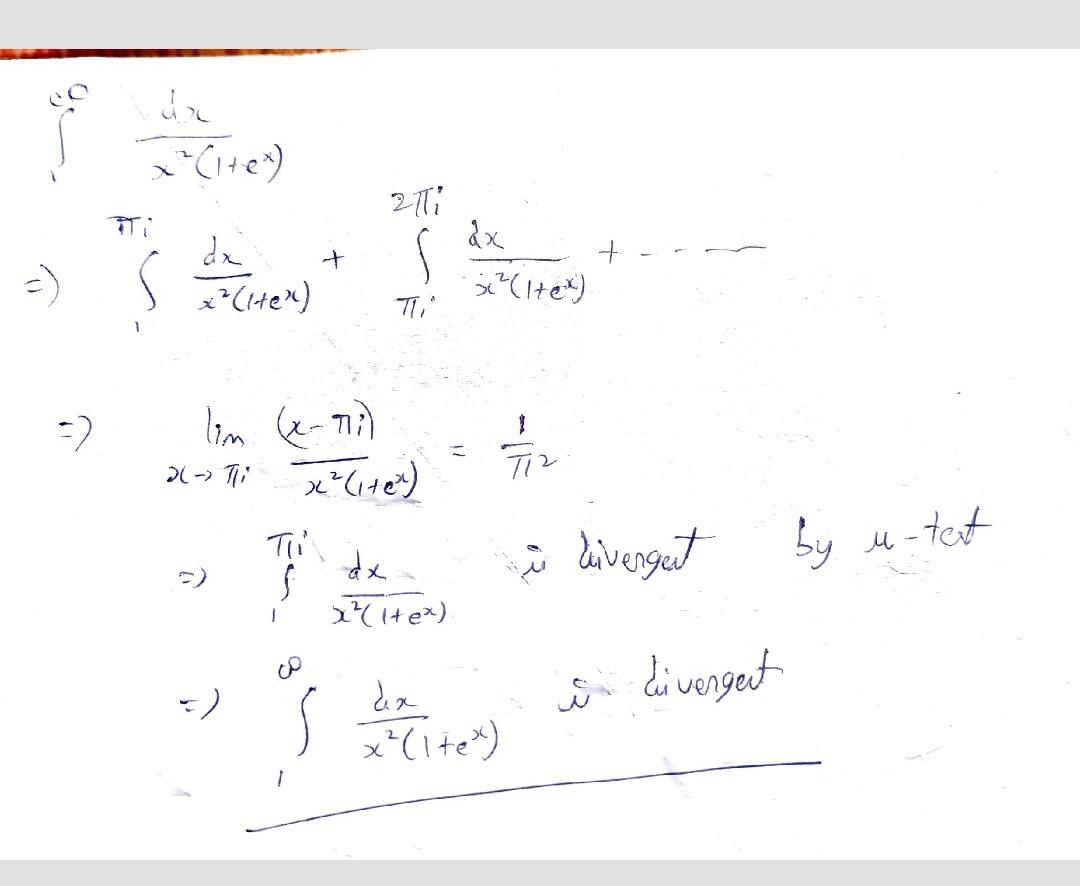 ∫₁^∞ dx / x²(1+eˣ)
=> ∫₁^πi dx / x²(1+eˣ) + ∫_πi^2πi dx / x²(1+eˣ) + - - - —
=> lim x→πi (x-πi) / x²(1+eˣ) = 1/π²
=> ∫₁^πi dx / x²(1+eˣ) is divergent by μ-test
=> ∫₁^∞ dx / x²(1+eˣ) is divergent